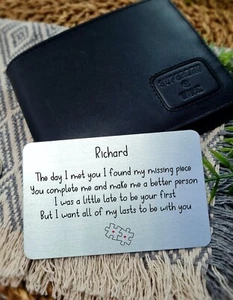 Richard
The day I met you I found my missing piece
You complete me and make me a better person
I was a little late to be your first
But I want all of my lasts to be with you